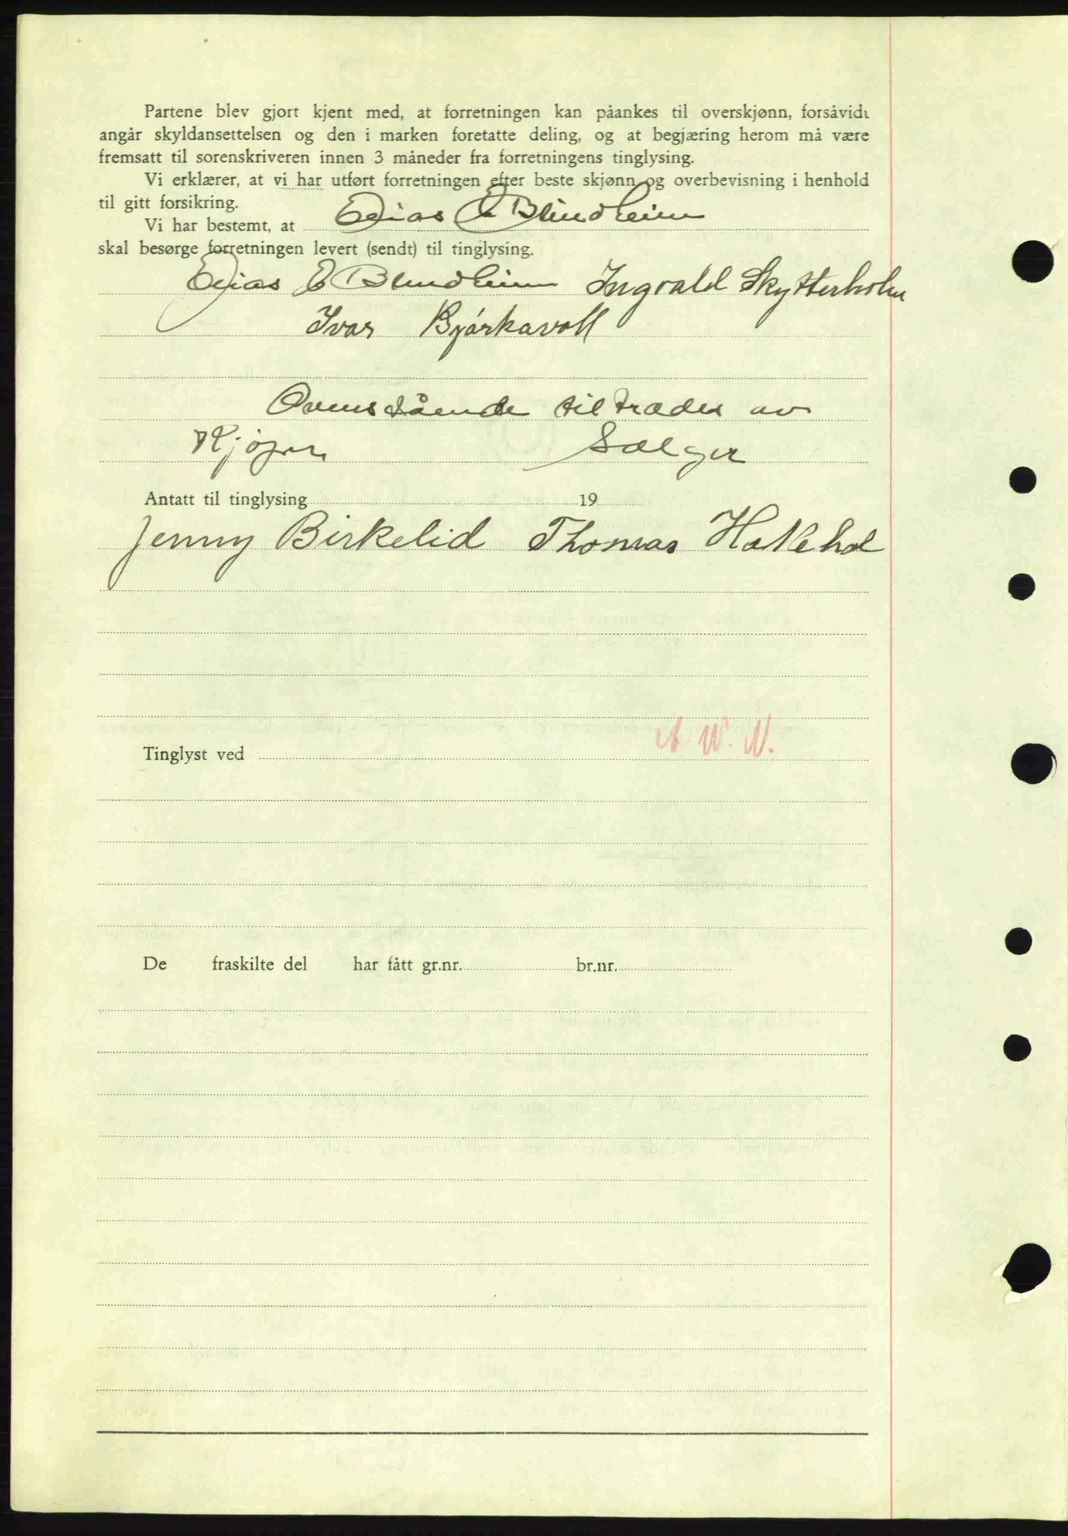 Partene blev gjort kjent med, at forretningen kan påankes til overskjønn, forsåvidt
angår skyldansettelsen og den i marken foretatte deling, og at begjæring herom må være
fremsatt til sorenskriveren innen 3 måneder fra forretningens tinglysing.
Vi erklærer, at vi har utført forretningen efter beste skjønn og overbevisning i henhold
til gitt forsikring.
Vi har bestemt, at Elias E Blindheim
skal besørge forretningen levert (sendt) til tinglysing.
Elias E Blindheim Ingvald Skytterholm
Ivar Bjørkavoll
Ovenstående tiltrædes av
Kjøper Selger
Antatt til tinglysing 19
Jenny Birkelid Thomas
A. W. N.
Tinglyst ved
De fraskilte del har fått gr.nr. br.nr.